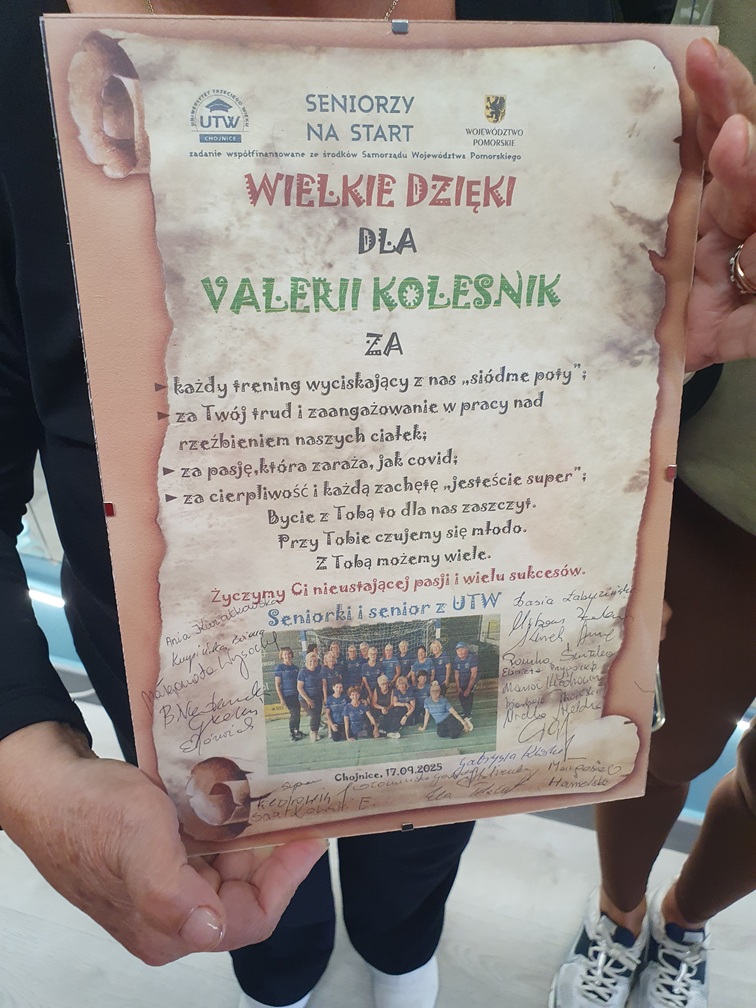 UNIWERSYTET TRZECIEGO WIEKU
UTW
CHOJNICE
SENIORZY
NA START
WOJEWÓDZTWO
POMORSKIE
zadanie współfinansowane ze środków Samorządu Województwa Pomorskiego
WIELKIE DZIĘKI
DLA
VALERII KOLESNIK
ZA
► każdy trening wyciskający z nas „siódme poty";
► za Twój trud i zaangażowanie w pracy nad
rzeźbieniem naszych ciałek;
► za pasję,która zaraża, jak covid;
► za cierpliwość i każdą zachętę „jesteście super";
Bycie z Tobą to dla nas zaszczyt.
Przy Tobie czujemy się młodo.
Z Tobą możemy wiele.
Życzymy Ci nieustającej pasji i wielu sukcesów.
Seniorki i senior z UTW
Ania
Małgorzata
Basia
Maria
Chojnice, 17.09.2025
Gabrysia
Ela